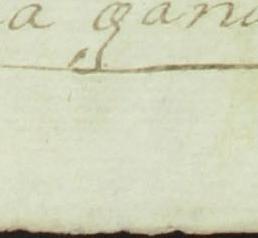 a gan